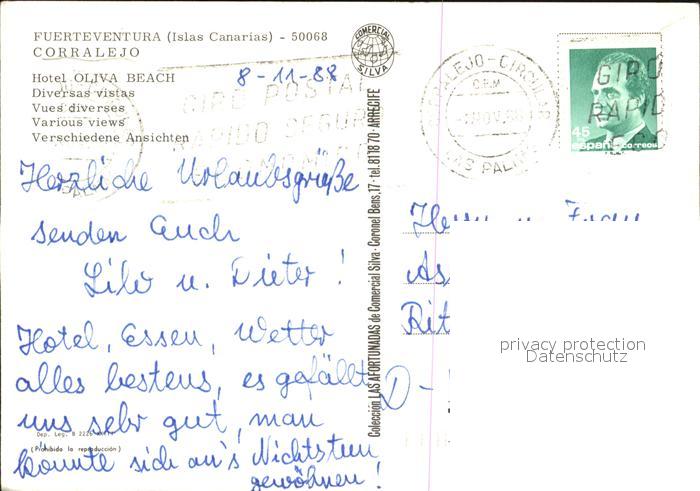 FUERTEVENTURA (Islas Canarias) - 50068
CORRALEJO
Hotel OLIVA BEACH
Diversas vistas
Vues diverses
Various views
Verschiedene Ansichten
8-11-88
Herzliche Urlaubsgrüße
senden Euch
Lilo u. Dieter !
Hotel, Essen, Wetter
alles bestens, es gefällt
uns sehr gut, man
könnte sich an's Nichtstun
gewöhnen!
Dep. Leg. B
(Prohibida la reproducción)
COMERCIAL
SILVA
Colección LAS AFORTUNADAS de Comercial Silva - Coronel Bens, 17 - tel. 81 18 70 - ARRECIFE
GIRO POSTAL
RAPIDO SEGURO
CORRALEJO-CIRCULAR
NOV. 88
LAS PALMAS
GIRO
RAPIDO
45
españa correos
Herrn u. Frau
As
Rit
D -
privacy protection
Datenschutz